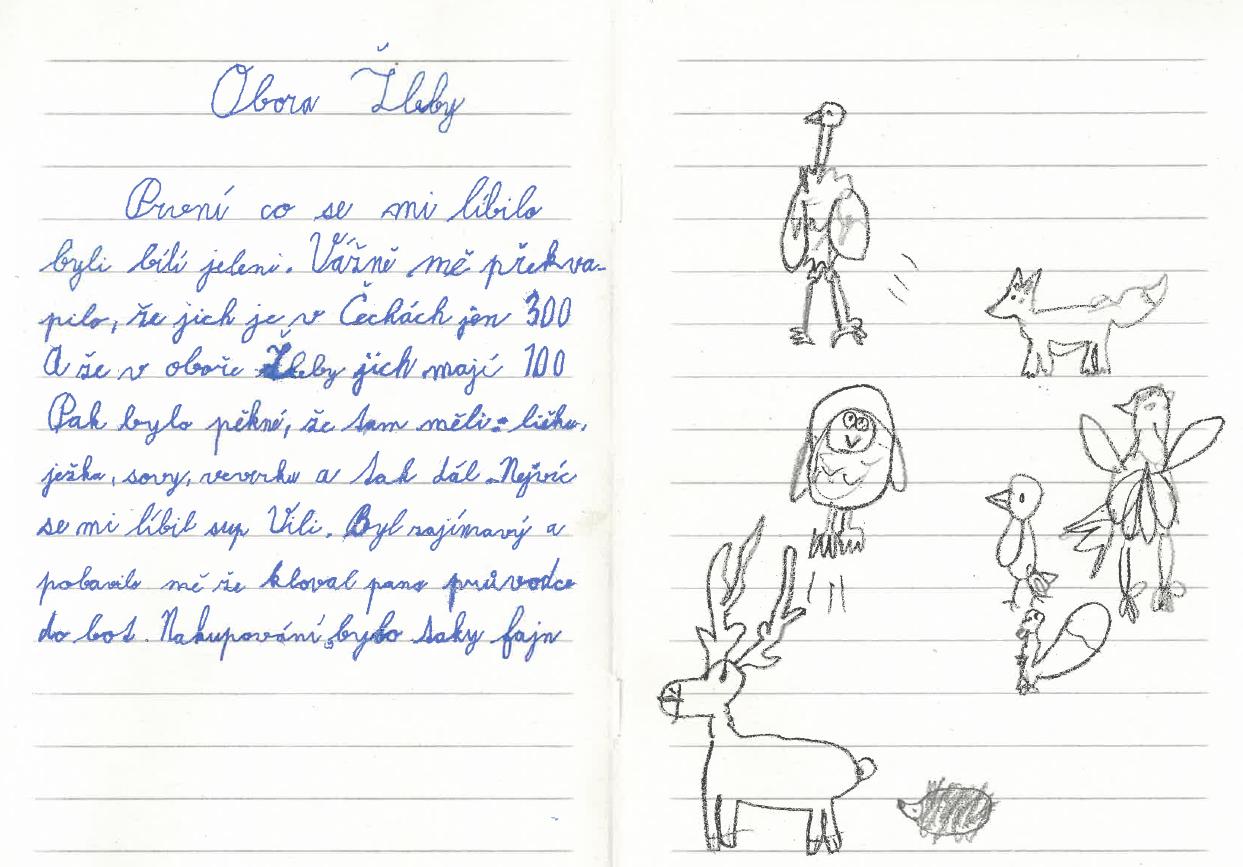 Obora Žleby
První co se mi líbilo
byli bílí jeleni. Vážně mě překva-
pilo, že jich je v Čechách jen 300
A že v oboře Žleby jich mají 100
Pak bylo pěkné, že tam měli: lišku,
ježka, sovy, veverku a tak dál. Nejvíc
se mi líbil sup Vili. Byl zajímavý a
pobavilo mě že kloval pana průvodce
do bot. Nakupování bylo taky fajn